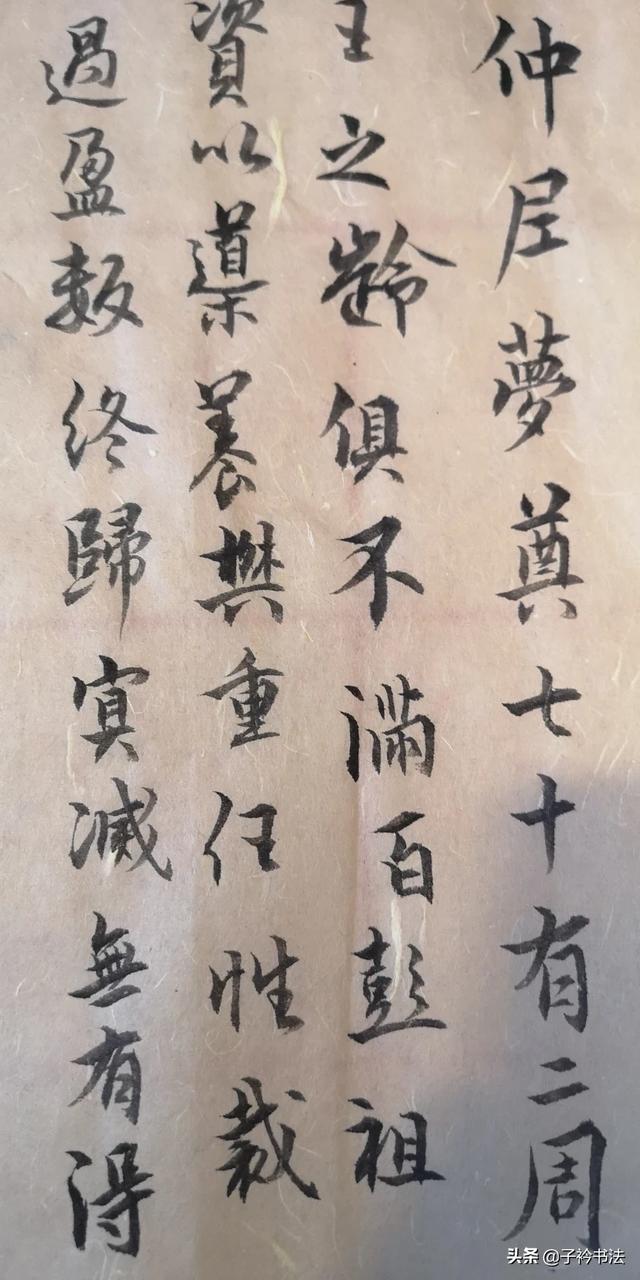 仲尼夢奠七十有二周
王之齡俱不滿百彭祖
資以導養樊重任性裁
過盈數終歸冥滅無有得
头条 @子衿书法